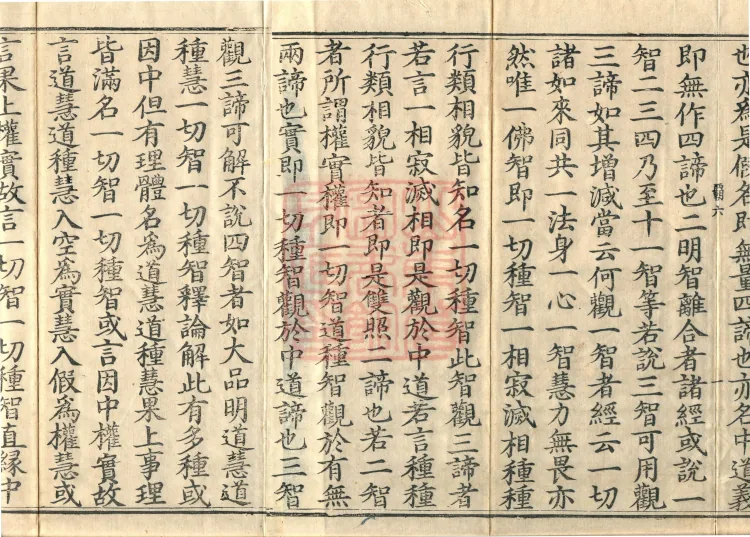 也亦為是假名即無量四諦也亦名中道義
即無作四諦也二明智離合者諸經或說一
智二三四乃至十一智等若說三智可用觀
三諦如其增減當云何觀一智者經云一切
諸如來同共一法身一心一智慧力無畏亦
然唯一佛智即一切種智一相寂滅相種種
行類相貌皆知名一切種智此智觀三諦者
若言一相寂滅相即是觀於中道若言種種
行類相貌皆知者即是雙照二諦也若二智
者所謂權實權即一切智道種智觀於有無
兩諦也實即一切種智觀於中道諦也三智
觀三諦可解不說四智者如大品明道慧道
種慧一切智一切種智釋論解此有多種或
因中但有理體名為道慧道種慧果上事理
皆滿名一切智一切種智或言因中權實故
言道慧道種慧入空為實慧入假為權慧或
言果上權實故言一切智一切種智直緣中